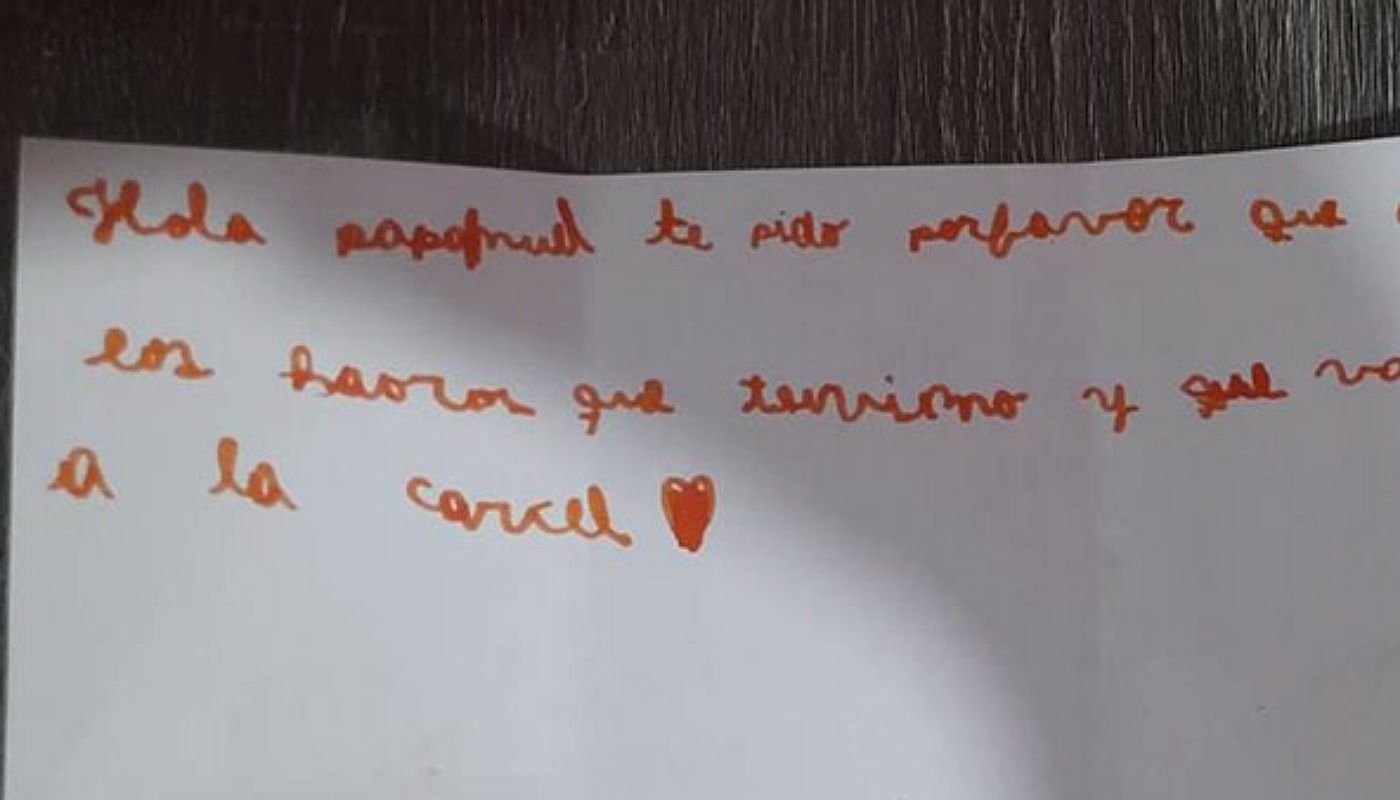 Hola papanuel te pido porfavor que
los haora que termino y que va
a la carcel